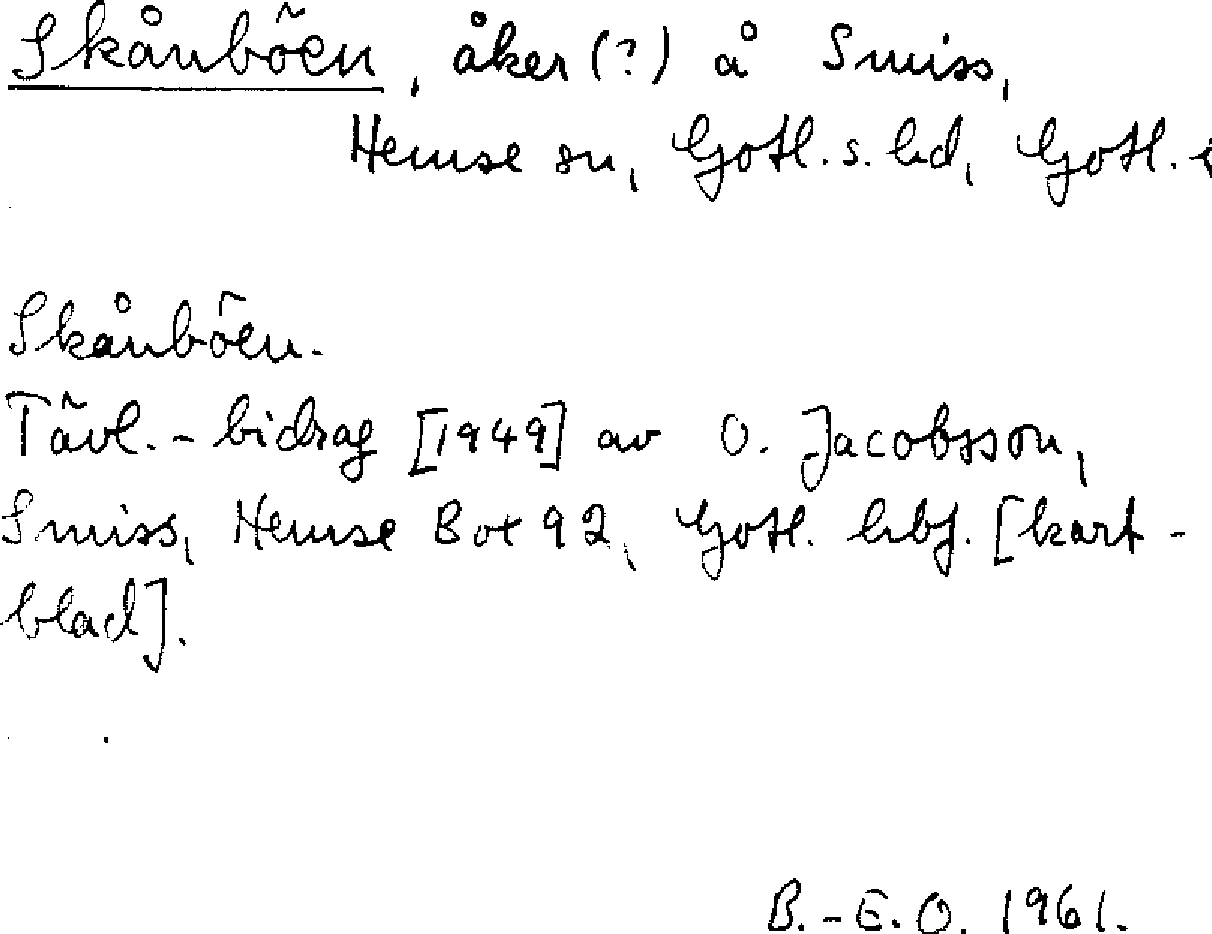 Skånböen, åker (?) å Smiss,
Hemse sn, Gotl. s. hd, Gotl.
Skånböen.
Tävl.-bidrag [1949] av O. Jacobsson,
Smiss, Hemse Box 92, Gotl. hbf. [kart-
blad].
B.-E.O. 1961.